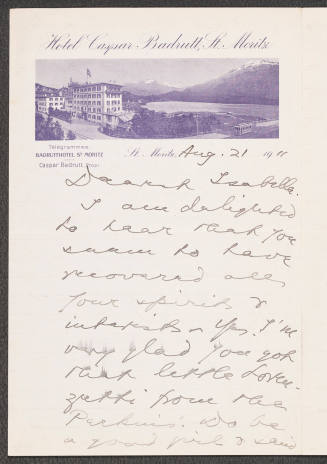 Hotel Caspar Badrutt, St. Moritz
Telegrammes
BADRUTTHOTEL ST MORITZ
Caspar Badrutt, Prop.
St. Moritz, Aug. 21 1911
Dearest Isabella.
I am delighted
to hear that you
seem to have
recovered all
your spirits &
interests. Yes. I'm
very glad you got
that little Loren-
zetti from the
Perkins'. Do be
a good girl & send